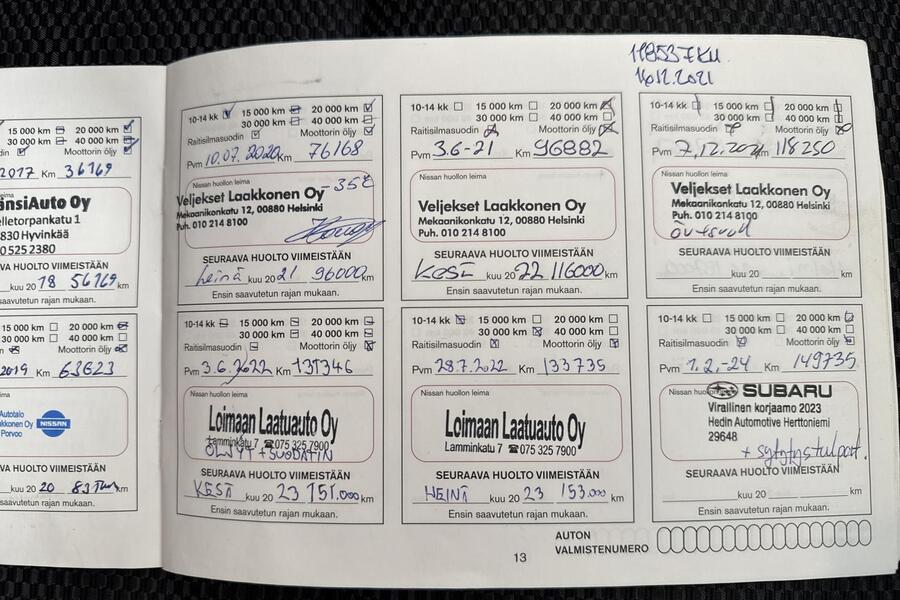 118537KM
16.12.2021
15 000 km 20 000 km
30 000 km 40 000 km
din Moottorin öljy
2017 Km 36169
leima
änsiAuto Oy
elletorpankatu 1
830 Hyvinkää
0 525 2380
AVA HUOLTO VIIMEISTÄÄN
kuu 20 18 56169 km
saavutetun rajan mukaan.
10-14 kk 15 000 km 20 000 km
30 000 km 40 000 km
Raitisilmasuodin Moottorin öljy
Pvm 10.07.2020 Km 76168
Nissan huollon leima
-35c
Veljekset Laakkonen Oy
Mekaanikonkatu 12, 00880 Helsinki
Puh. 010 214 8100
SEURAAVA HUOLTO VIIMEISTÄÄN
heinä kuu 20 21 96000 km
Ensin saavutetun rajan mukaan.
10-14 kk 15 000 km 20 000 km
30 000 km 40 000 km
Raitisilmasuodin Moottorin öljy
Pvm 3.6-21 Km 96882
Nissan huollon leima
Veljekset Laakkonen Oy
Mekaanikonkatu 12, 00880 Helsinki
Puh. 010 214 8100
SEURAAVA HUOLTO VIIMEISTÄÄN
KESÄ kuu 20 22 116000 km
Ensin saavutetun rajan mukaan.
10-14 kk 15 000 km 20 000 km
30 000 km 40 000 km
Raitisilmasuodin Moottorin öljy
Pvm 7.12.2021 Km 118250
Nissan huollon leima
Veljekset Laakkonen Oy
Mekaanikonkatu 12, 00880 Helsinki
Puh. 010 214 8100
SEURAAVA HUOLTO VIIMEISTÄÄN
kuu 20 km
Ensin saavutetun rajan mukaan.
15 000 km 20 000 km
30 000 km 40 000 km
Moottorin öljy
2019 Km 63623
Autotalo
kkonen Oy
Porvoo
NISSAN
AVA HUOLTO VIIMEISTÄÄN
kuu 20 20 km
saavutetun rajan mukaan.
10-14 kk 15 000 km 20 000 km
30 000 km 40 000 km
Raitisilmasuodin Moottorin öljy
Pvm 3.6.2022 Km 131346
Nissan huollon leima
Loimaan Laatuauto Oy
Lamminkatu 7 ☎075 325 7900
ÖLJYT + SUODATIN
SEURAAVA HUOLTO VIIMEISTÄÄN
KESÄ kuu 20 23 151.000 km
Ensin saavutetun rajan mukaan.
10-14 kk 15 000 km 20 000 km
30 000 km 40 000 km
Raitisilmasuodin Moottorin öljy
Pvm 28.7.2022 Km 133735
Nissan huollon leima
Loimaan Laatuauto Oy
Lamminkatu 7 ☎075 325 7900
SEURAAVA HUOLTO VIIMEISTÄÄN
HEINÄ kuu 20 23 153.000 km
Ensin saavutetun rajan mukaan.
10-14 kk 15 000 km 20 000 km
30 000 km 40 000 km
Raitisilmasuodin Moottorin öljy
Pvm 1.2.-24 Km 149735
Nissan huollon leima
SUBARU
Virallinen korjaamo 2023
Hedin Automotive Herttoniemi
29648
+ sytytystulpat.
SEURAAVA HUOLTO VIIMEISTÄÄN
kuu 20 km
Ensin saavutetun rajan mukaan.
AUTON
VALMISTENUMERO
13